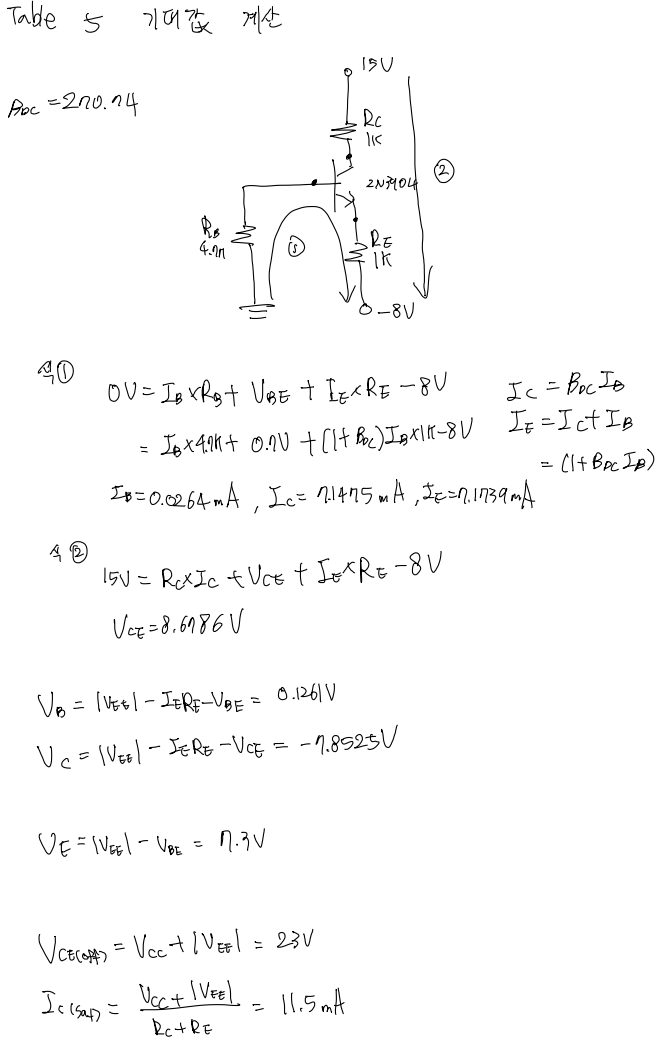 Table 5 기대값 계산
15V
βDC = 270.74
RC
1K
2N3904
②
RB
4.7K
①
RE
1K
-8V
식①
0V = IB×RB + VBE + IE×RE -8V
IC = βDC IB
= IB×4.7K + 0.7V + (1+βDC)IB×1K-8V
IE = IC + IB
= (1+βDC IB)
IB = 0.0264mA, IC = 7.1475mA, IE = 7.1739mA
식②
15V = RC×IC + VCE + IE×RE -8V
VCE = 8.6786V
VB = |VEE| - IERE - VBE = 0.1261V
VC = |VEE| - IERE - VCE = -7.8525V
VE = |VEE| - VBE = 7.3V
VCE(off) = VCC + |VEE| = 23V
IC(sat) = (VCC + |VEE|) / (RC + RE) = 11.5mA